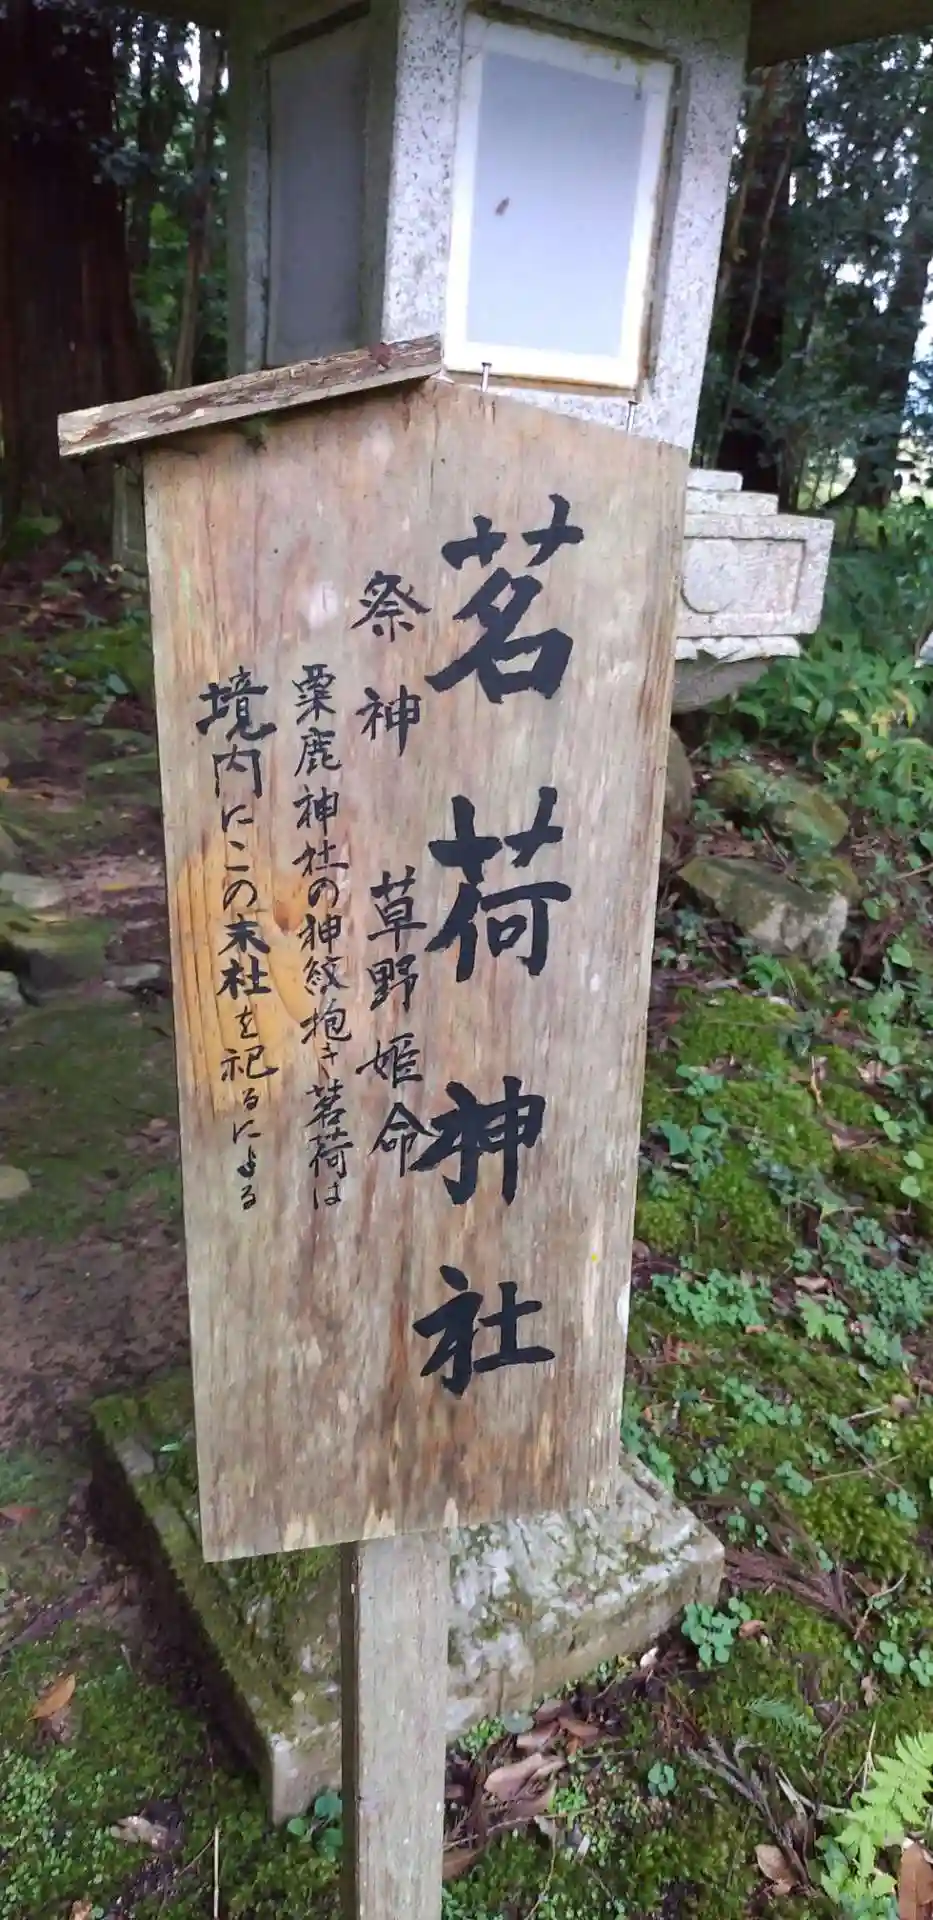 茗荷神社
祭神 草野姫命
粟鹿神社の神紋抱き茗荷は
境内にこの末社を祀るによる